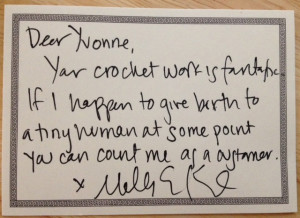 Dear Yvonne,
Your crochet work is fantastic.
If I happen to give birth to
a tiny human at some point
you can count me as a customer.
x